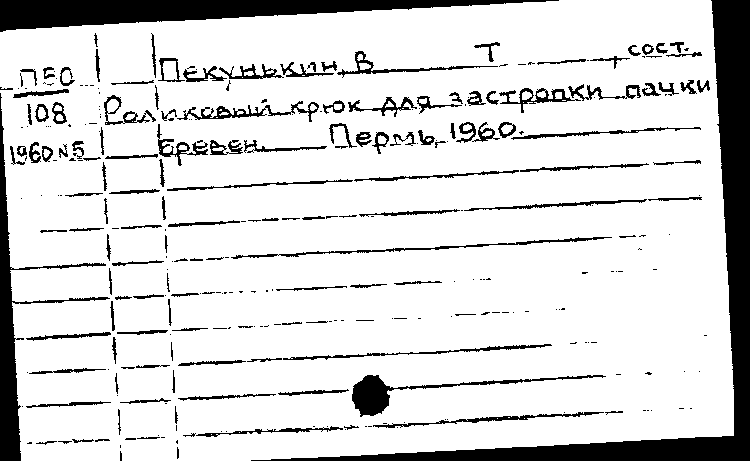 П50 Пекунькин, В Т , сост.
108 Роликовый крюк для застропки пачки
1960 N5 бревен. Пермь, 1960.